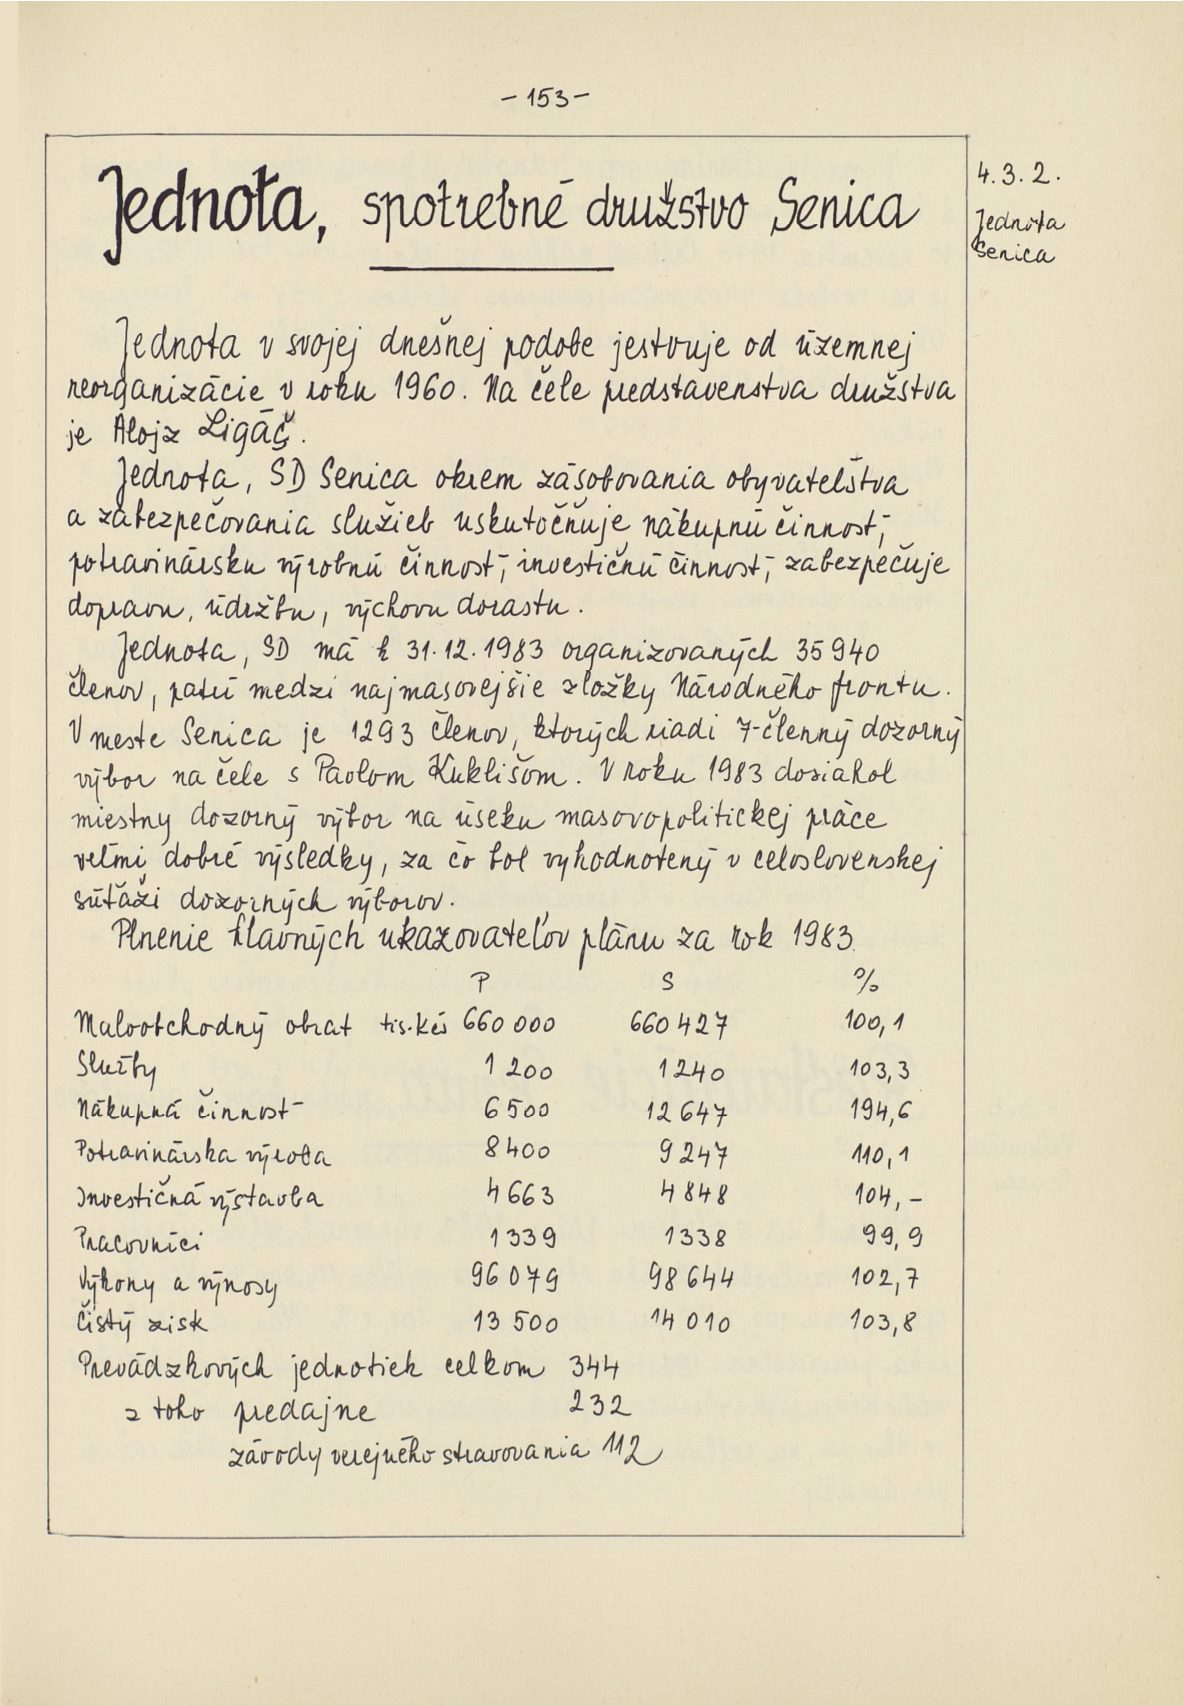 - 153 -
4.3.2.
Jednota
Senica
Jednota, spotrebné družstvo Senica
Jednota v svojej dnešnej podobe jestvuje od územnej
reorganizácie v roku 1960. Na čele predstavenstva družstva
je Alojz Ligáč.
Jednota, SD Senica okrem zásobovania obyvateľstva
a zabezpečovania služieb uskutočňuje nákupnú činnosť,
potravinársku výrobnú činnosť, investičnú činnosť, zabezpečuje
dopravu, údržbu, výchovu dorastu.
Jednota, SD má k 31.12.1983 organizovaných 35 940
členov, patrí medzi najmasovejšie zložky Národného frontu.
V meste Senica je 1293 členov, ktorých riadi 7-členný dozorný
výbor na čele s Pavlom Kuklišom. V roku 1983 dosiahol
miestny dozorný výbor na úseku masovopolitickej práce
veľmi dobré výsledky, za čo bol vyhodnotený v celoslovenskej
súťaži dozorných výborov.
Plnenie hlavných ukazovateľov plánu za rok 1983
P S %
Maloobchodný obrat tis. Kčs 660 000 660 427 100,1
Služby 1 200 1240 103,3
Nákupná činnosť 6 500 12 647 194,6
Potravinárska výroba 8 400 9 247 110,1
Investičná výstavba 4 663 4 848 104,-
Pracovníci 1339 1338 99,9
Výkony a výnosy 96 079 98 644 102,7
Čistý zisk 13 500 14 010 103,8
Prevádzkových jednotiek celkom 344
z toho predajne 232
závody verejného stravovania 112